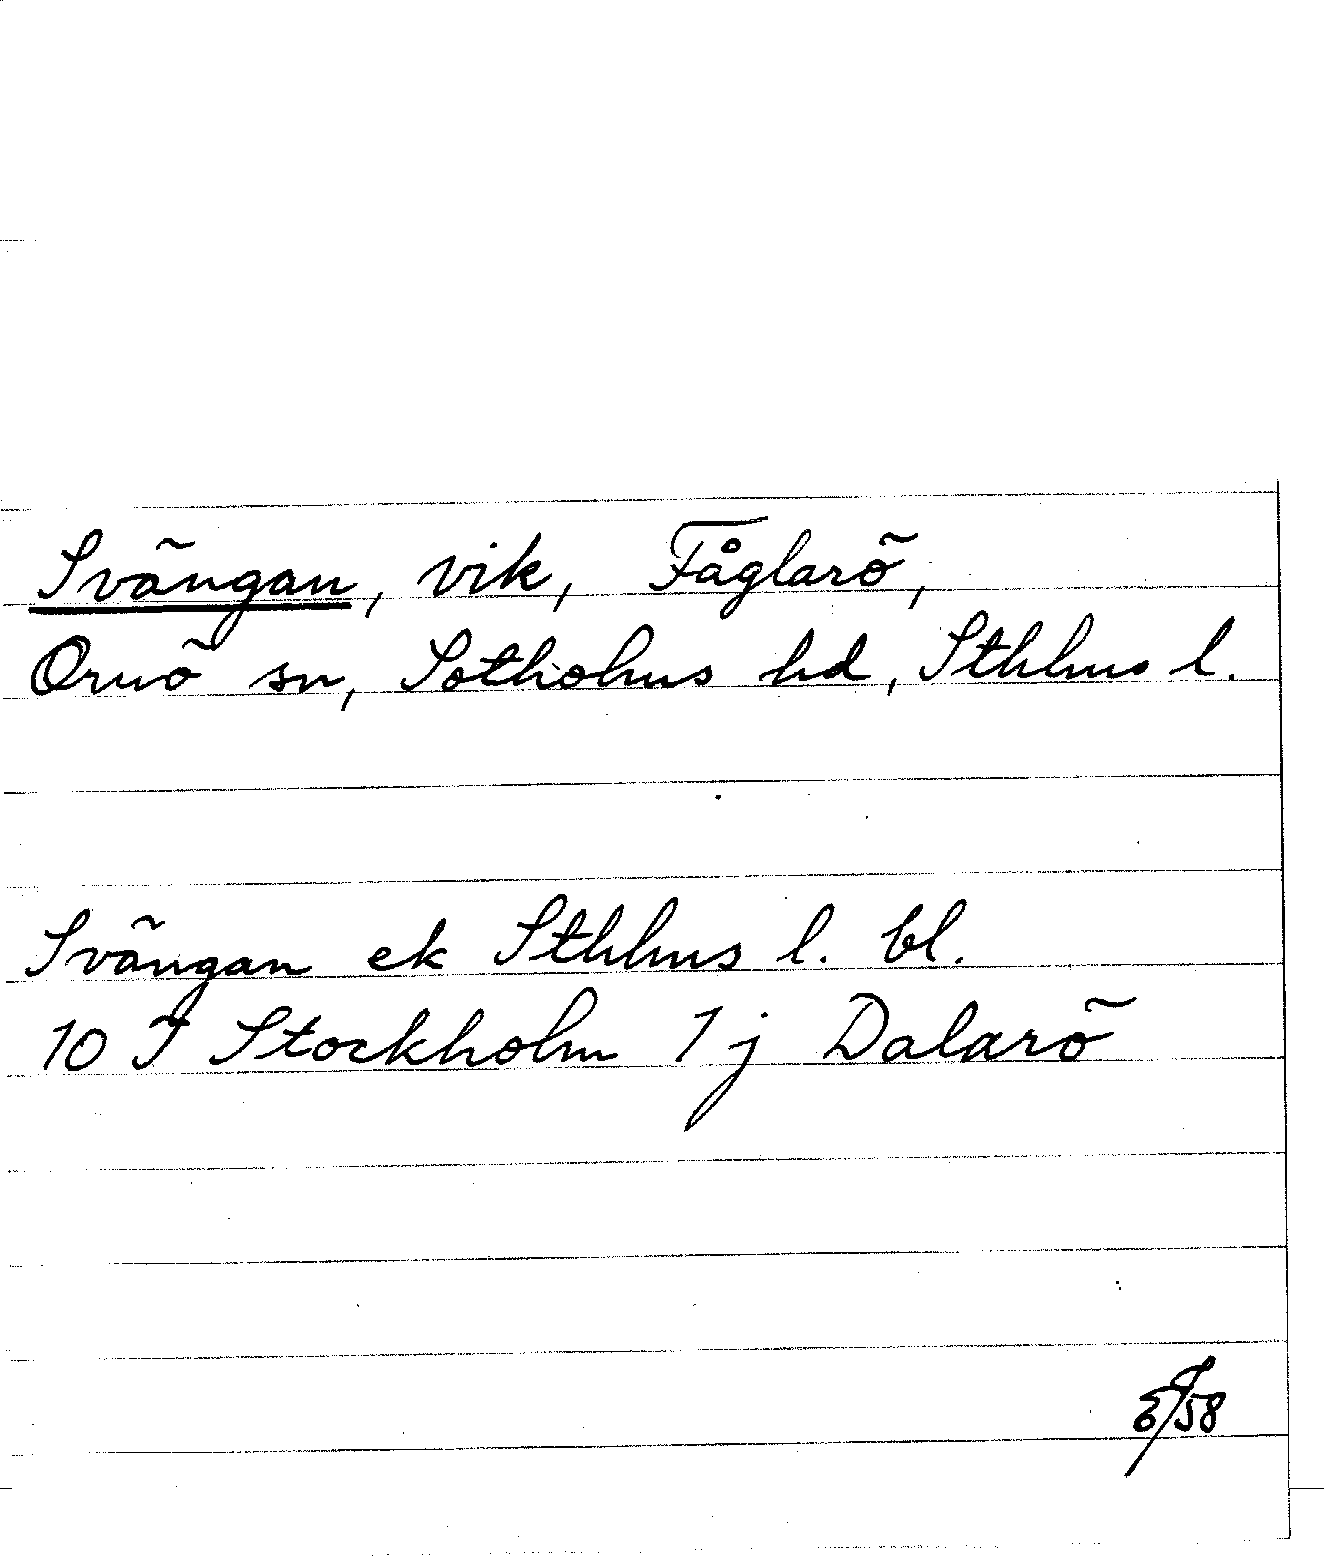 Svängan, vik, Fåglarö,
Ornö sn, Sotholms hd, Sthlms l.
Svängan ek Sthlms l. bl.
10 I Stockholm 1 j Dalarö
58